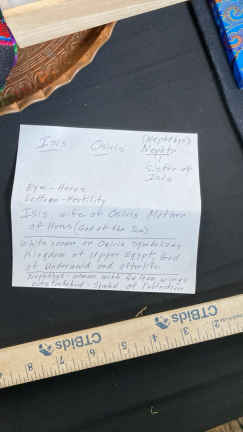 Isis Osiris (Nephthys)
Nephty
Sister of
Isis
Eye-Horus
Bottom-Fertility
Isis wife of Osiris Mother
of Horus (God of the Sun)
White crown on Osiris symbolizing
Kingdom of Upper Egypt. God
of Underworld and afterlife
woman with outstretched wings
symbol of protection
CTBids
8 7 6 5 4 3 2
CTBids